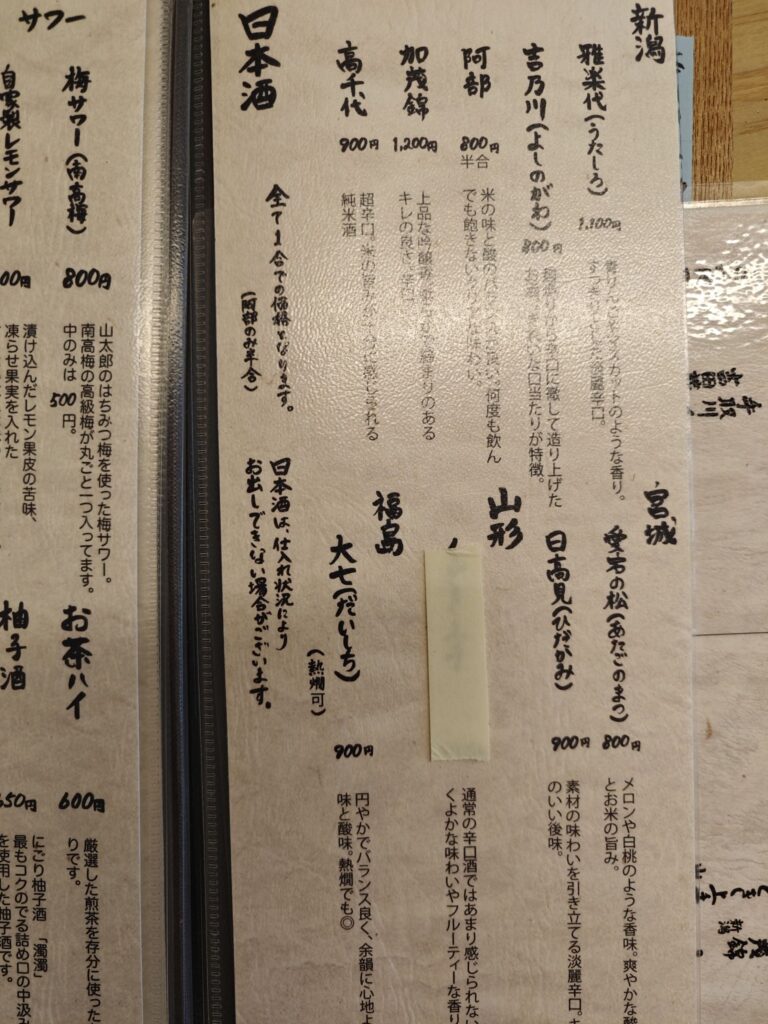 日本酒
新潟
雅楽代(うたしろ)
1,100円
すっきりとした淡麗辛口。
吉乃川(よしのがわ)
800円
お酒。きれいな口当たりが特徴。
阿部
800円
半合
米の味と酸のバランスが良い。何度も飲ん
でも飽きない
味わい。
加茂錦
1,200円
上品な吟醸香。
締まりのある
キレの良さ。辛口
高千代
900円
超辛口。米の旨みが十分に感じられる
純米酒
全て1合での価格となります。
(阿部のみ半合)
宮城
愛宕の松(あたごのまつ)
800円
メロンや白桃のような香味。爽やかな酸
とお米の旨み。
日高見(ひたかみ)
900円
素材の味わいを引き立てる淡麗辛口。
のいい後味。
山形
通常の辛口酒ではあまり感じられない
くよかな味わいやフルーティーな香り
福島
大七(だいしち)
(熱燗可)
900円
円やかでバランス良く、余韻に心地よ
味と酸味。熱燗でも◎
日本酒は、仕入れ状況により
お出しできない場合がございます。
サワー
梅サワー(南高梅)
800円
山太郎のはちみつ梅を使った梅サワー。
南高梅の高級梅が丸ごと一つ入ってます。
中のみは500円。
自家製レモンサワー
00円
漬け込んだレモン果皮の苦味、
凍らせ果実を入れた
お茶ハイ
600円
厳選した煎茶を存分に使った
りです。
柚子酒
650円
にごり柚子酒「濁濁」
最もコクのでる詰め口の中汲み
を使用した柚子酒です。
手取川
新潟